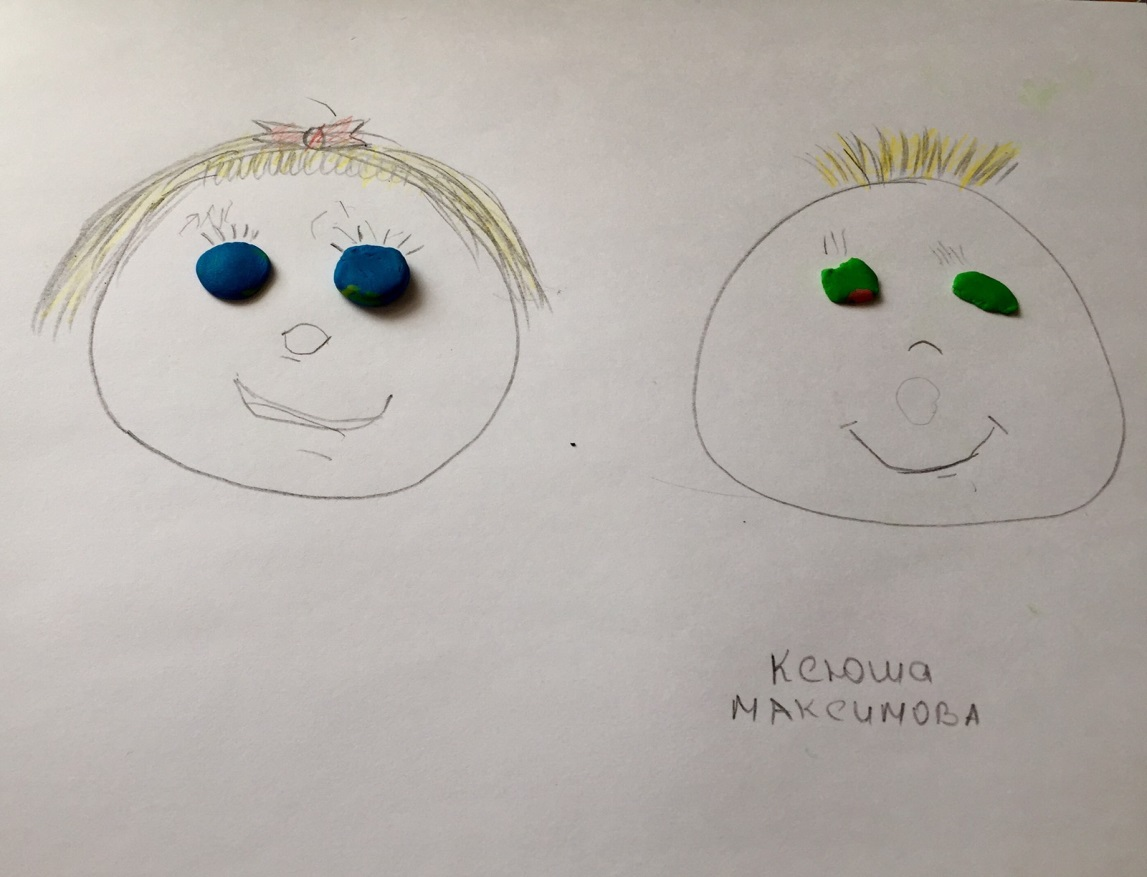 Ксюша
МАКСИМОВА